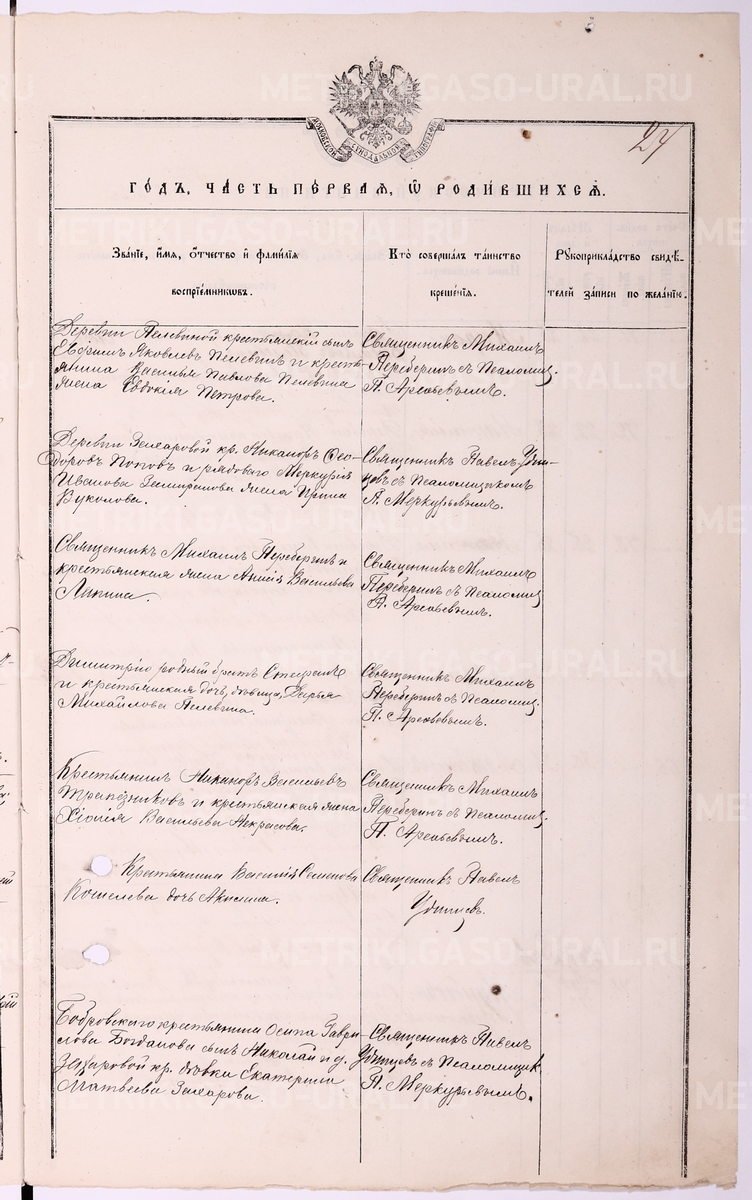 METRIKI.GASO-URAL.RU
МОСКОВСКОЙ СѴНОДАЛЬНОЙ ТИПОГРАФІИ
24
ГОДЪ, ЧАСТЬ ПЕРВАЯ, Ѿ РОДИВШИХСЯ.
Званіе, имя, отчество и фамилія
воспріемниковъ.
Кто совершалъ таинство
крещенія.
Рукоприкладство свидѣ-
телей записи по желанію.
Деревни Пелевиной крестьянскій сынъ
Евфимъ Яковлевъ Пелевинъ и кресть-
янина Василья Павлова Пелевина
жена Евдокія Петрова.
Священникъ Михаилъ
Переберинъ съ Псаломщ.
П. Арсеньевымъ.
Деревни Захаровой кр. Никаноръ Ѳео-
доровъ Поповъ и рядоваго Меркурія
Иванова жена Ирина
Вуколова.
Священникъ Павелъ Удин-
цовъ съ Псаломщикомъ
П. Меркурьевымъ.
Священникъ Михаилъ Переберинъ и
крестьянская жена Анисія Васильева
Липина,
Священникъ Михаилъ
Переберинъ съ Псаломщ
П. Арсеньевымъ.
Димитрію родный братъ Стефанъ
и крестьянская дочь, дѣвица, Дарья
Михайлова Пелевина.
Священникъ Михаилъ
Переберинъ съ Псаломщ.
П. Арсеньевымъ.
Крестьянинъ Никаноръ Васильевъ
Трапезниковъ и крестьянская жена
Хіонія Васильева Некрасова.
Священникъ Михаилъ
Переберинъ съ Псаломщ.
П. Арсеньевымъ.
Крестьянина Василія Семенова
Кошелева дочь Акилина.
Священникъ Павелъ
Удинцевъ.
Бобровскаго крестьянина Осипа Гаври-
лова Богданова сынъ Николай и д.
Захаровой кр. дѣвка Екатерина
Матвеева Захарова.
Священникъ Павелъ
Удинцевъ съ Псаломщик.
П. Меркурьевымъ.